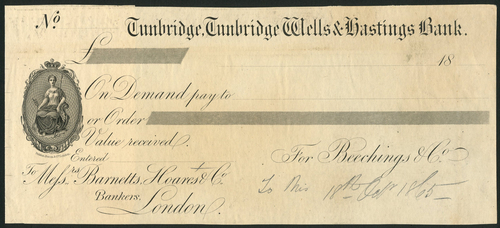 No Tunbridge, Tunbridge Wells & Hastings Bank.
£ 18
On Demand pay to
or Order
Value received.
Entered
To Messrs. Barnetts, Hoares & Co.
Bankers,
London.
For Beechings & Co.
To this 18th 1865